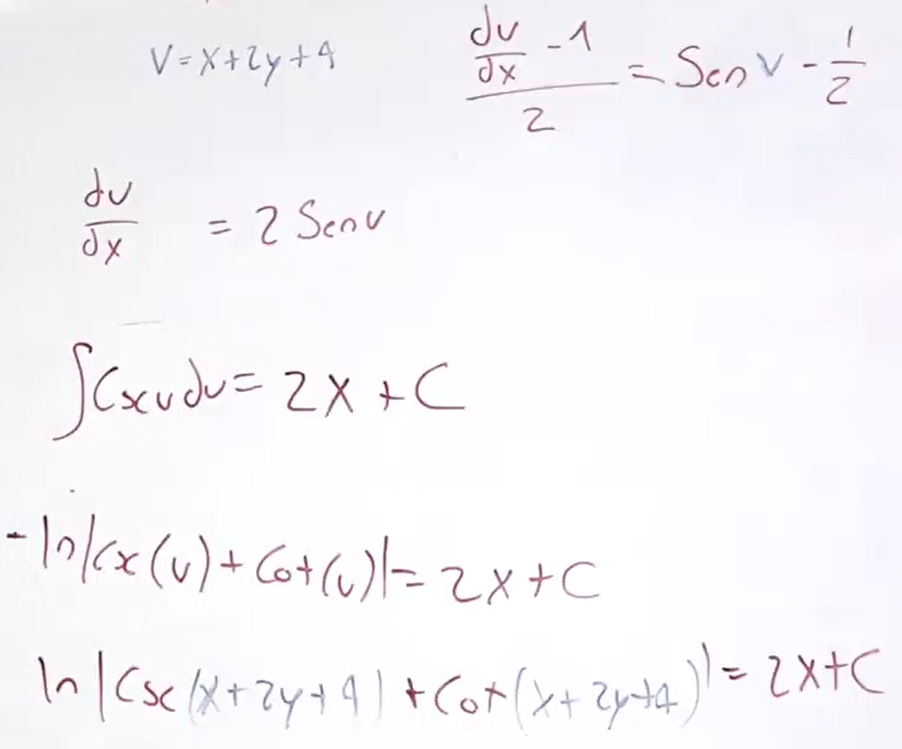 V=x+2y+4
(dv/dx -1)/2 = Sen v - 1/2
dv/dx = 2 Sen v
∫Csc v dv = 2x + C
-ln|Csc(v) + Cot(v)| = 2x + C
ln|Csc(x+2y+4) + Cot(x+2y+4)| = 2x+C